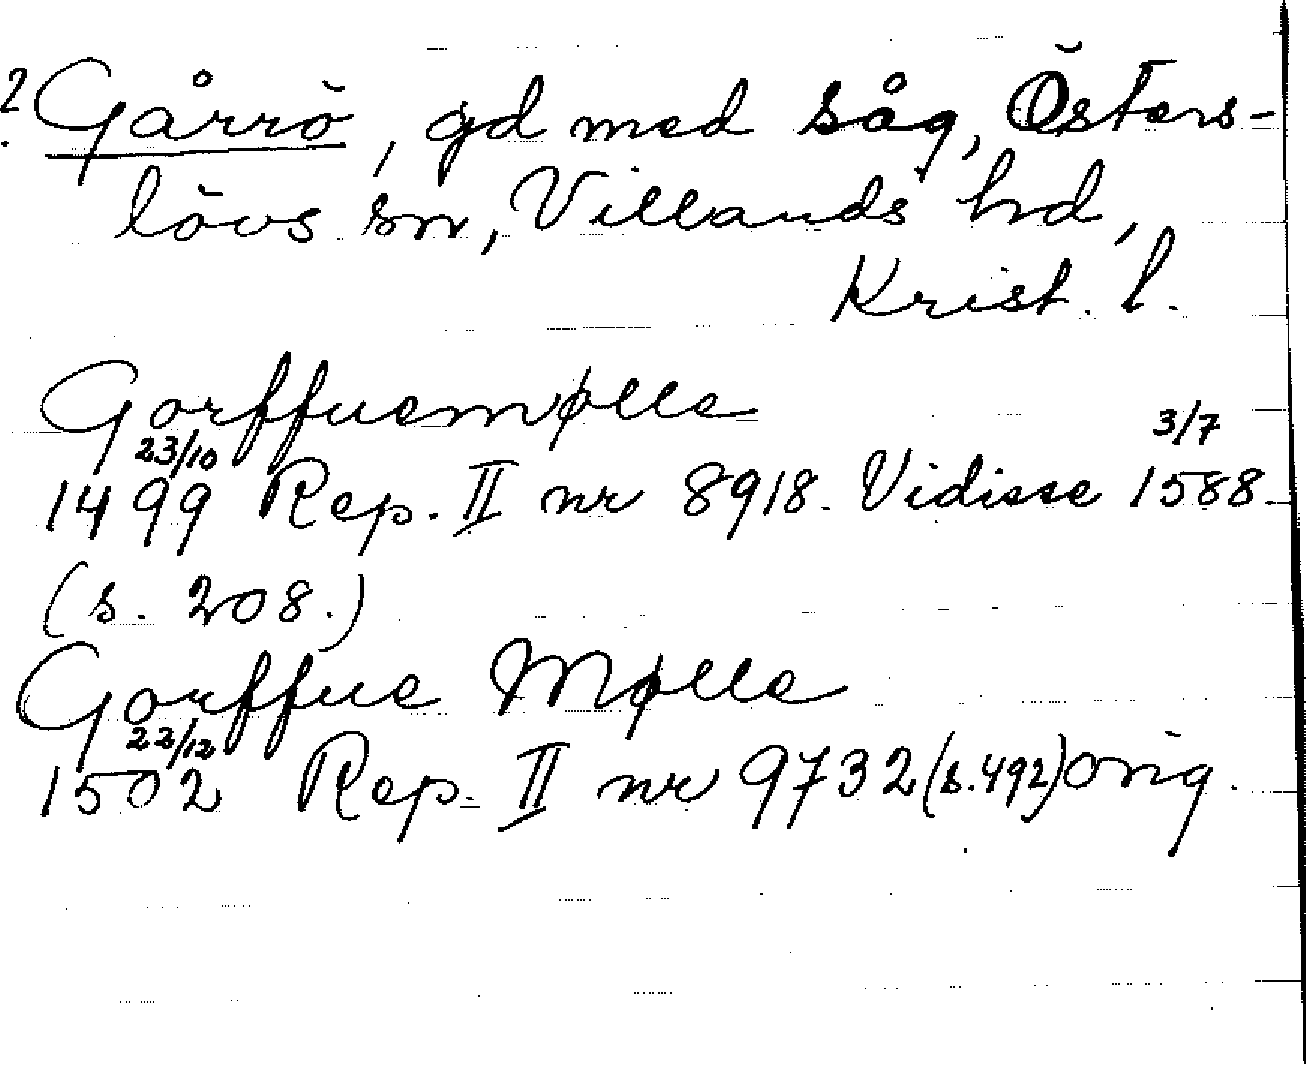 ? Gårrö, gd med såg, Östers-
lövs sn, Villands hd,
Krist. l.
Gorffuemølle
23/10 3/7
1499 Rep. II nr 8918. Vidisse 1588.
(s. 208.)
Gorffue Mølle
22/12
1502 Rep. II nr 9732 (s. 492) orig.